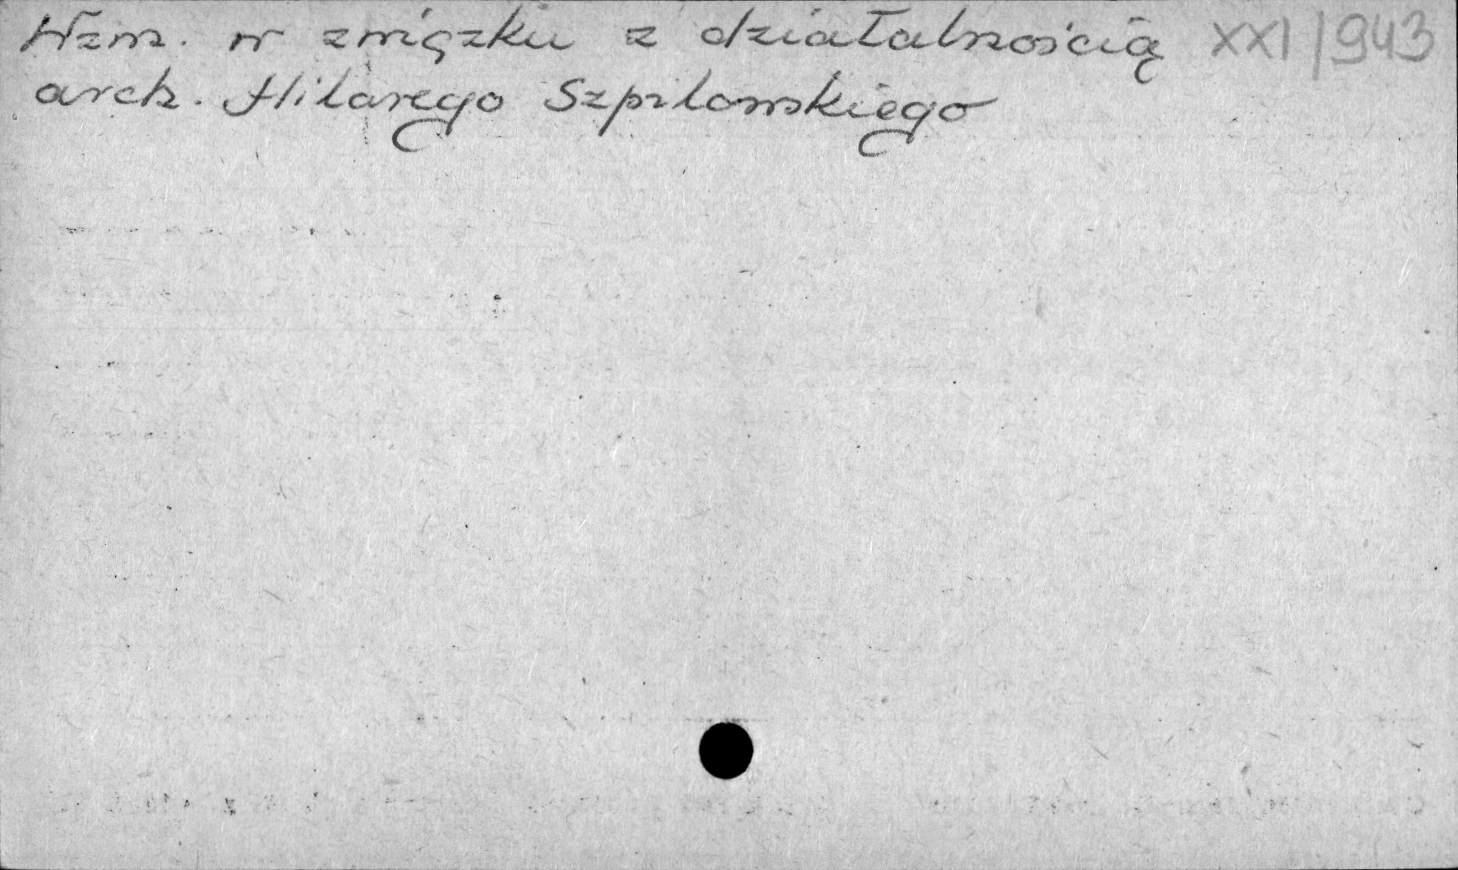 Wzm. w związku z działalnością XXI/943
arch. Hilarego Szpilowskiego